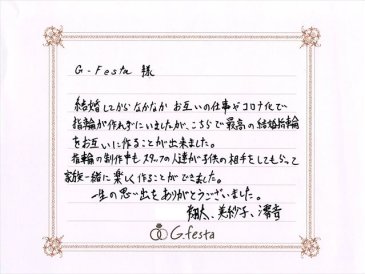 G-Festa 様
結婚してからなかなかお互いの仕事やコロナ化で
指輪が作れずにいましたが、こちらで最高の結婚指輪
をお互いに作ることが出来ました。
指輪の制作中もスタッフの人達が子供の相手をしてもらって
家族一緒に楽しく作ることができました。
一生の思い出をありがとうございました。
翔太、美紗子、澪音
G.festa